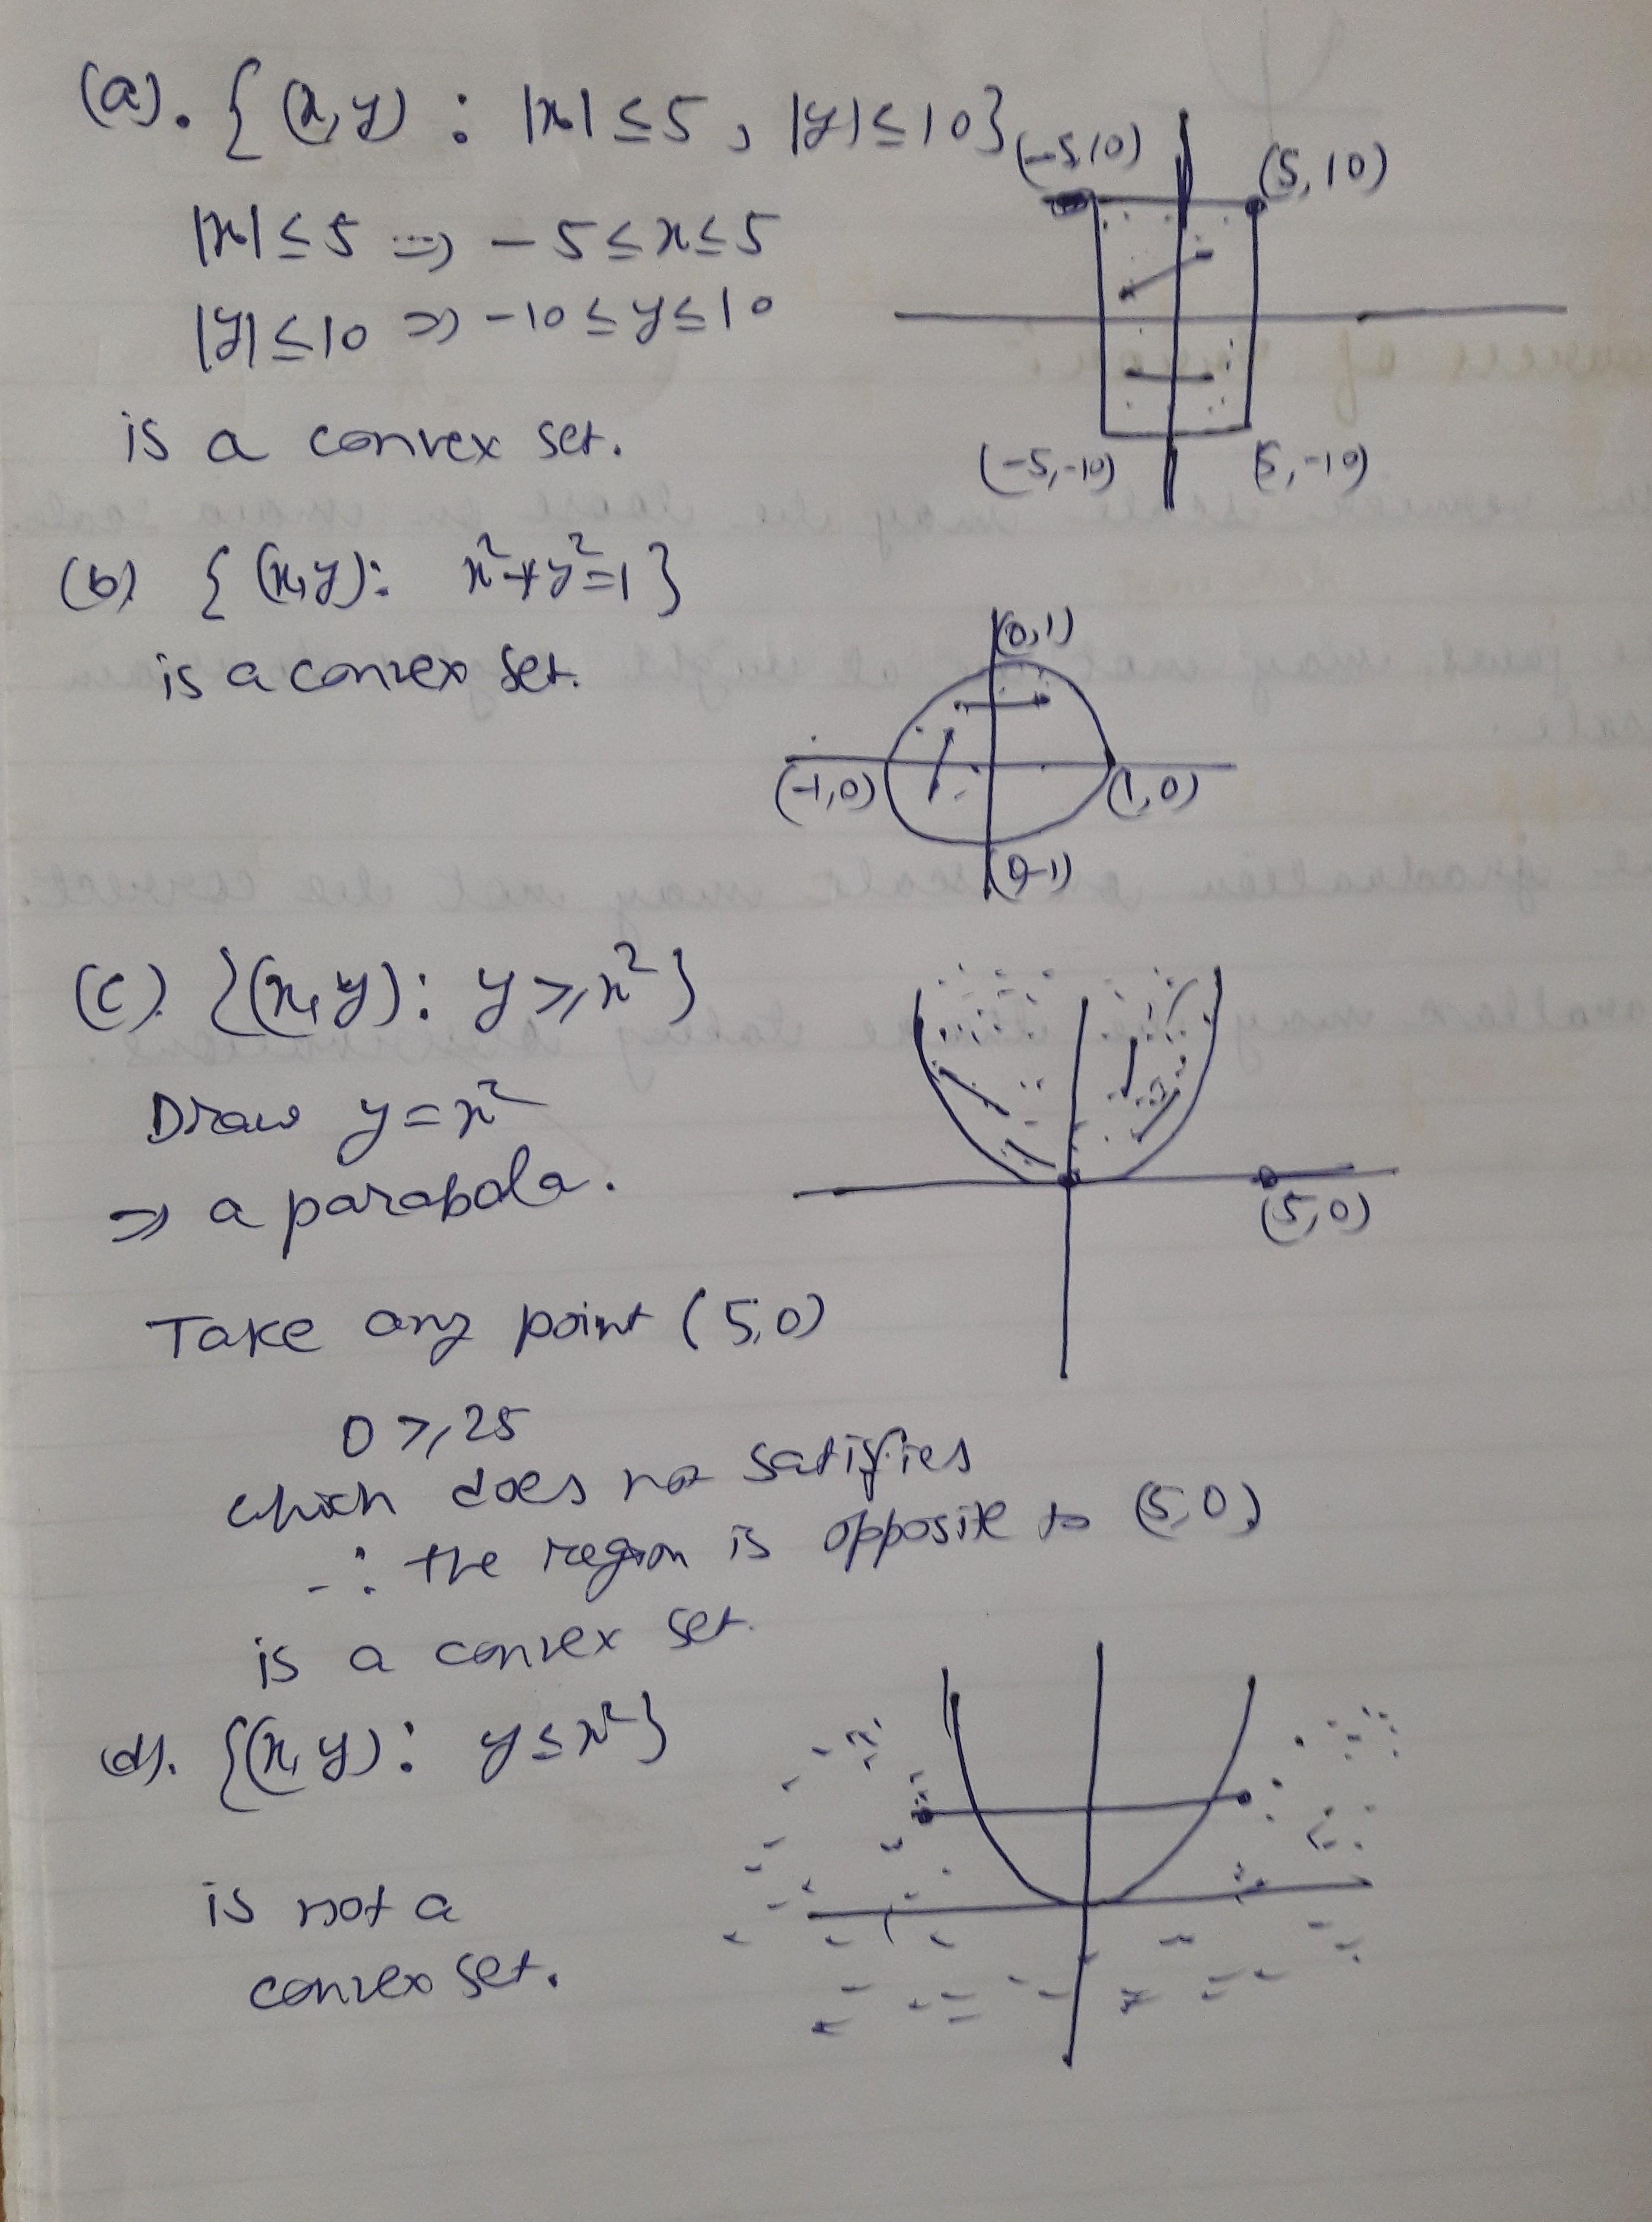 (a). { (x,y) : |x| ≤ 5 , |y| ≤ 10}
(-5,10)
(5,10)
|x| ≤ 5 ⇒ -5 ≤ x ≤ 5
|y| ≤ 10 ⇒ -10 ≤ y ≤ 10
is a convex set.
(-5,-10)
(5,-10)
(b) { (x,y): x²+y²=1}
is a convex set.
(0,1)
(-1,0)
(1,0)
(0-1)
(c). {(x,y): y ≥ x²}
Draw y = x²
⇒ a parabola.
(5,0)
Take any point (5,0)
0 ≥ 25
which does not satisfies
∴ the region is opposite to (5,0)
is a convex set.
(d). {(x,y): y ≤ x²}
is not a
convex set.